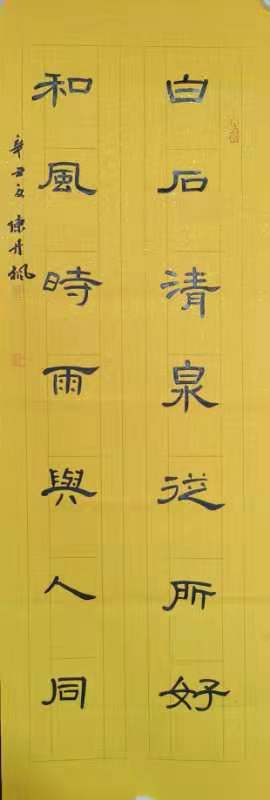 白石清泉從所好
和風時雨與人同
辛丑文陳丹楓